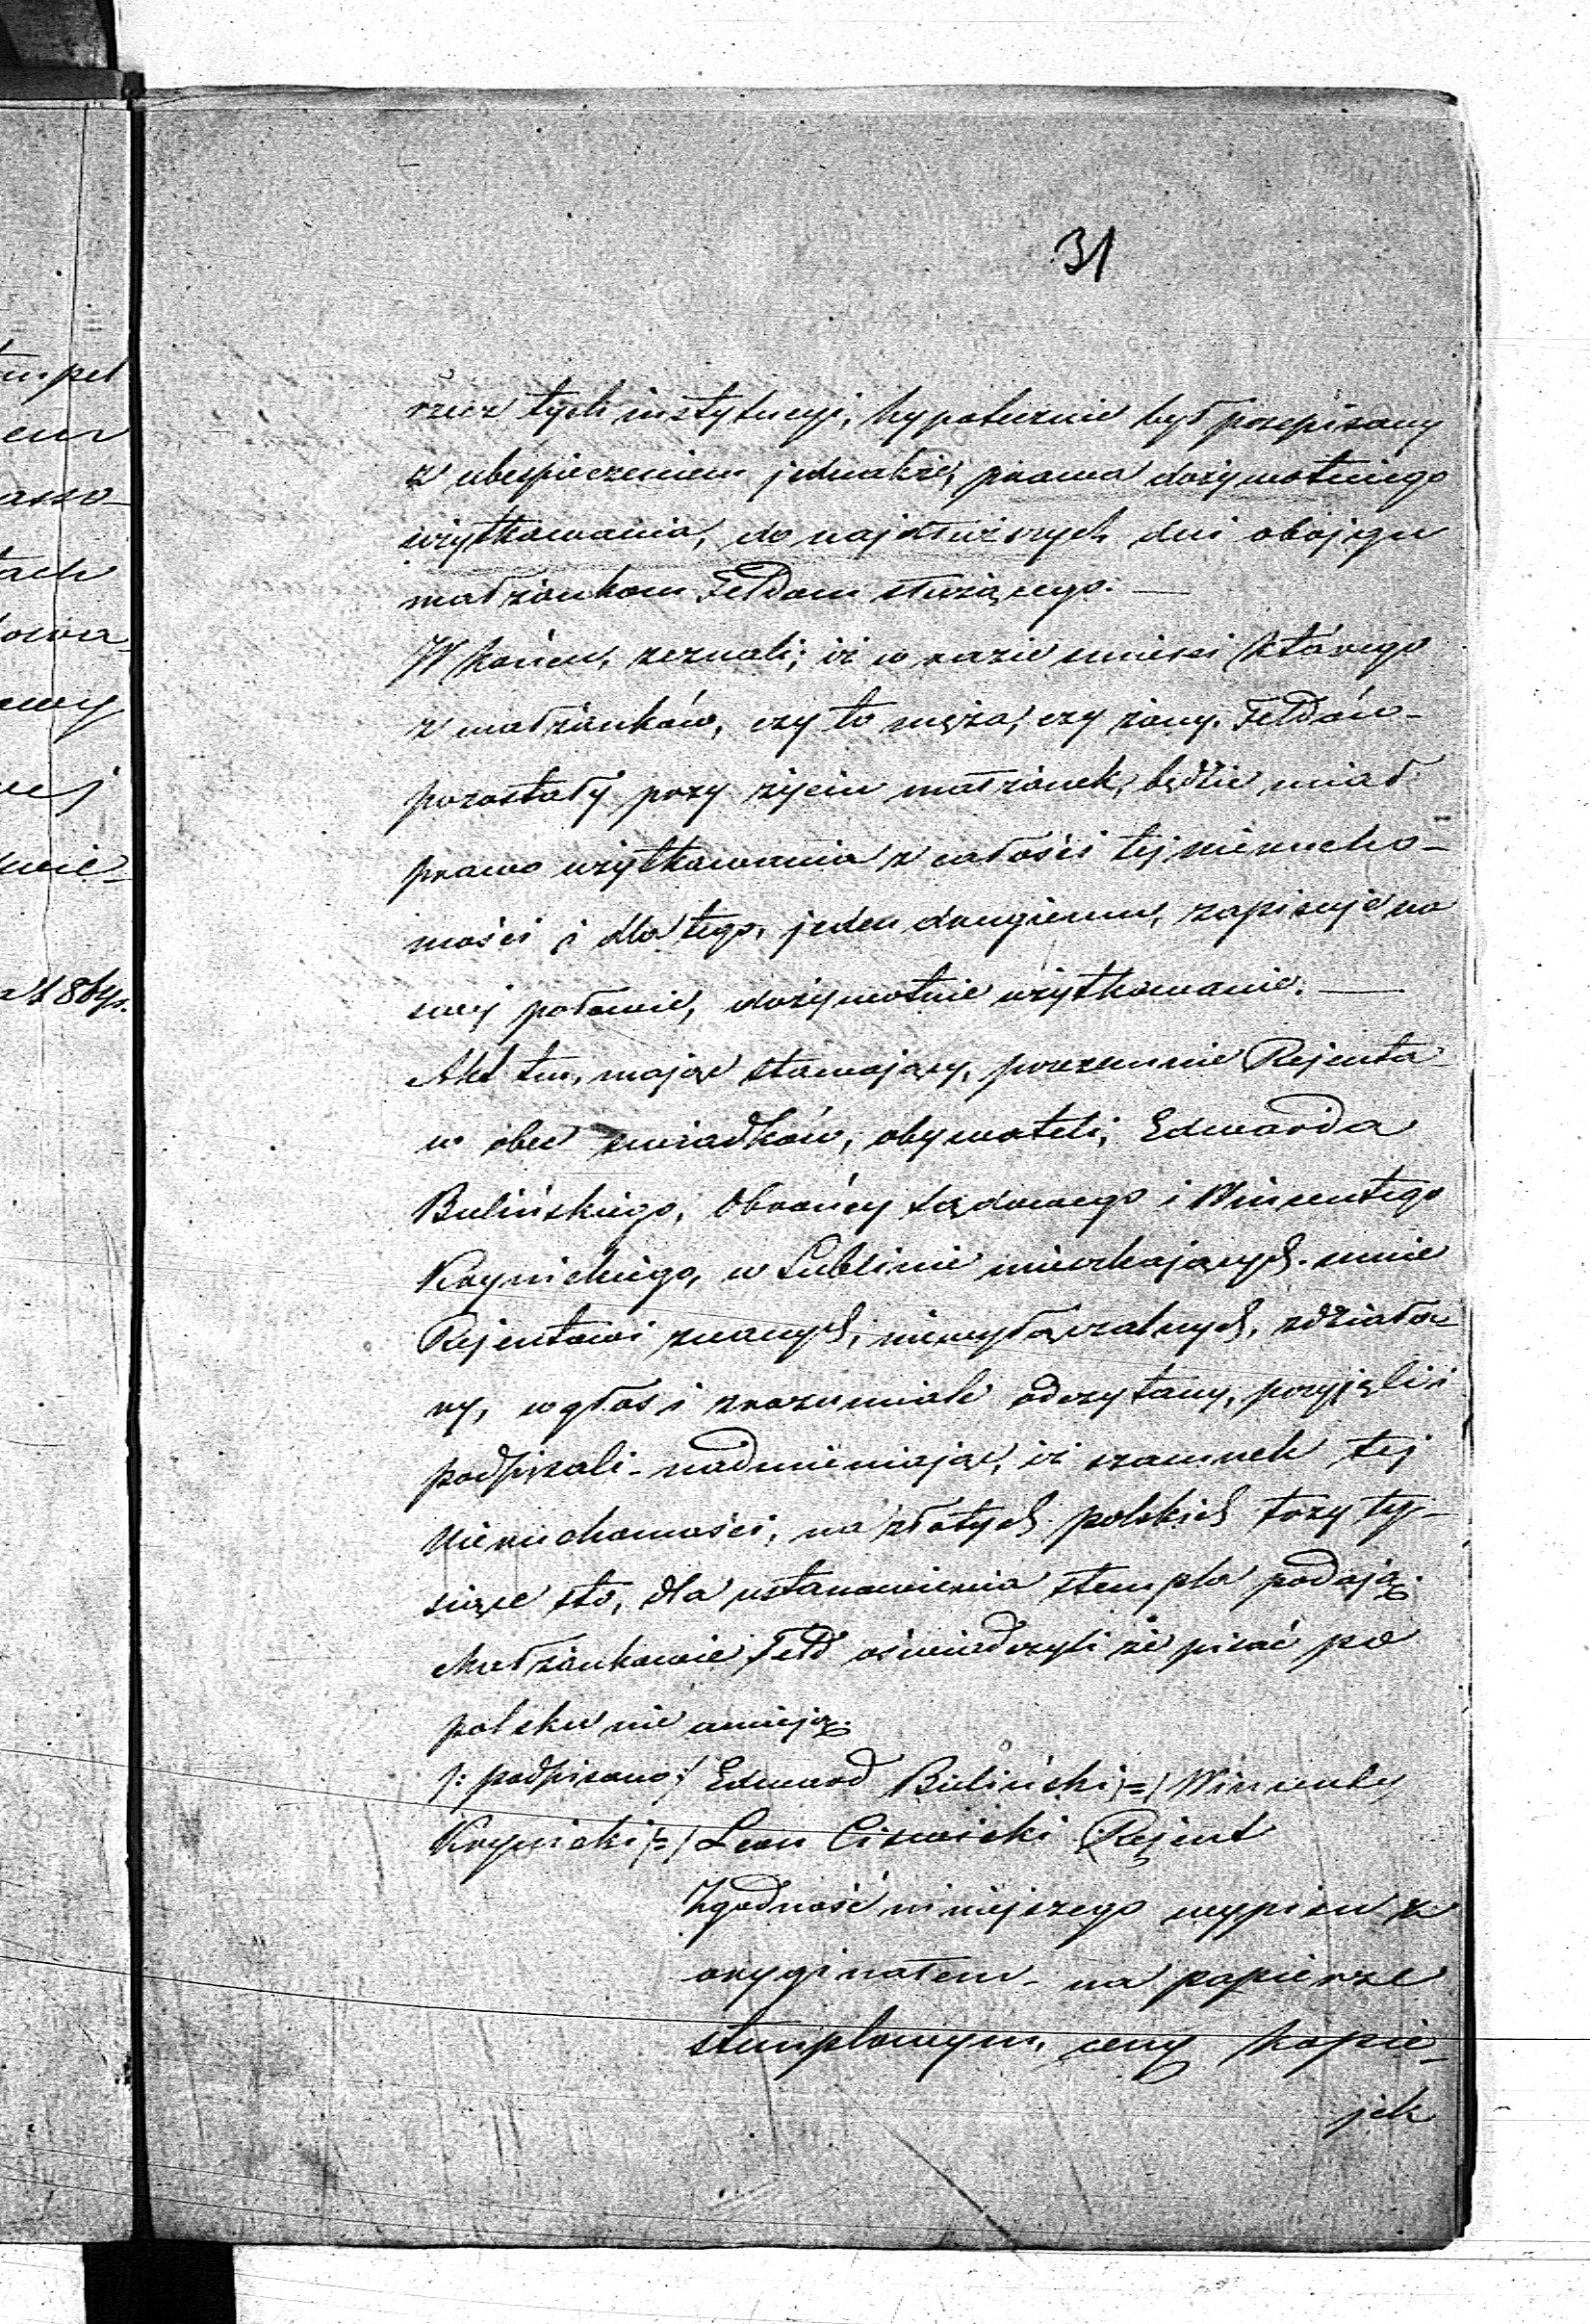 31
rzecz tych instytucyi, hypotecznie był przepisany
z ubespieczeniem jednakże, prawa dożywotniego
użytkowania, do najdłuższych dni obojgu
małżonkom Feldom służącego. —
W końcu, zeznali; iż w razie śmierci którego
z małżonków, czy to męża, czy żony, Feldów –
pozostały przy życiu małżonek, będzie miał
prawo użytkowania z całości tej nierucho-
mości i dla tego, jeden drugiemu, zapisuje na
swej połowie, dożywotnie użytkowanie. —
Akt ten, mając stawający, przezemnie Rejenta
w obec świadków, obywateli, Edwarda
Bielińskiego, Obrońcy Sądowego i Wincentego
Krynickiego, w Lublinie mieszkających – mnie
Rejentowi znanych, niewyłączalnych, zdziała-
ny, w głos i zrozumiale odczytany, przyjęli i
podpisali – nadmieniając, iż szacunek tej
Nieruchomości, na złotych polskich trzy ty-
siące sto, dla ustanowienia stempla podają.
Małżonkowie Feld oświadczyli że pisać po
polsku nie umieją.
/: podpisano:/ Edward Bieliński /=/ Wincenty
Krynicki /=/ Leon Rejent
Zgodność niniejszego wypisu z
oryginałem – na papierze
stemplowym, ceny kopie-
jek
tach
wej